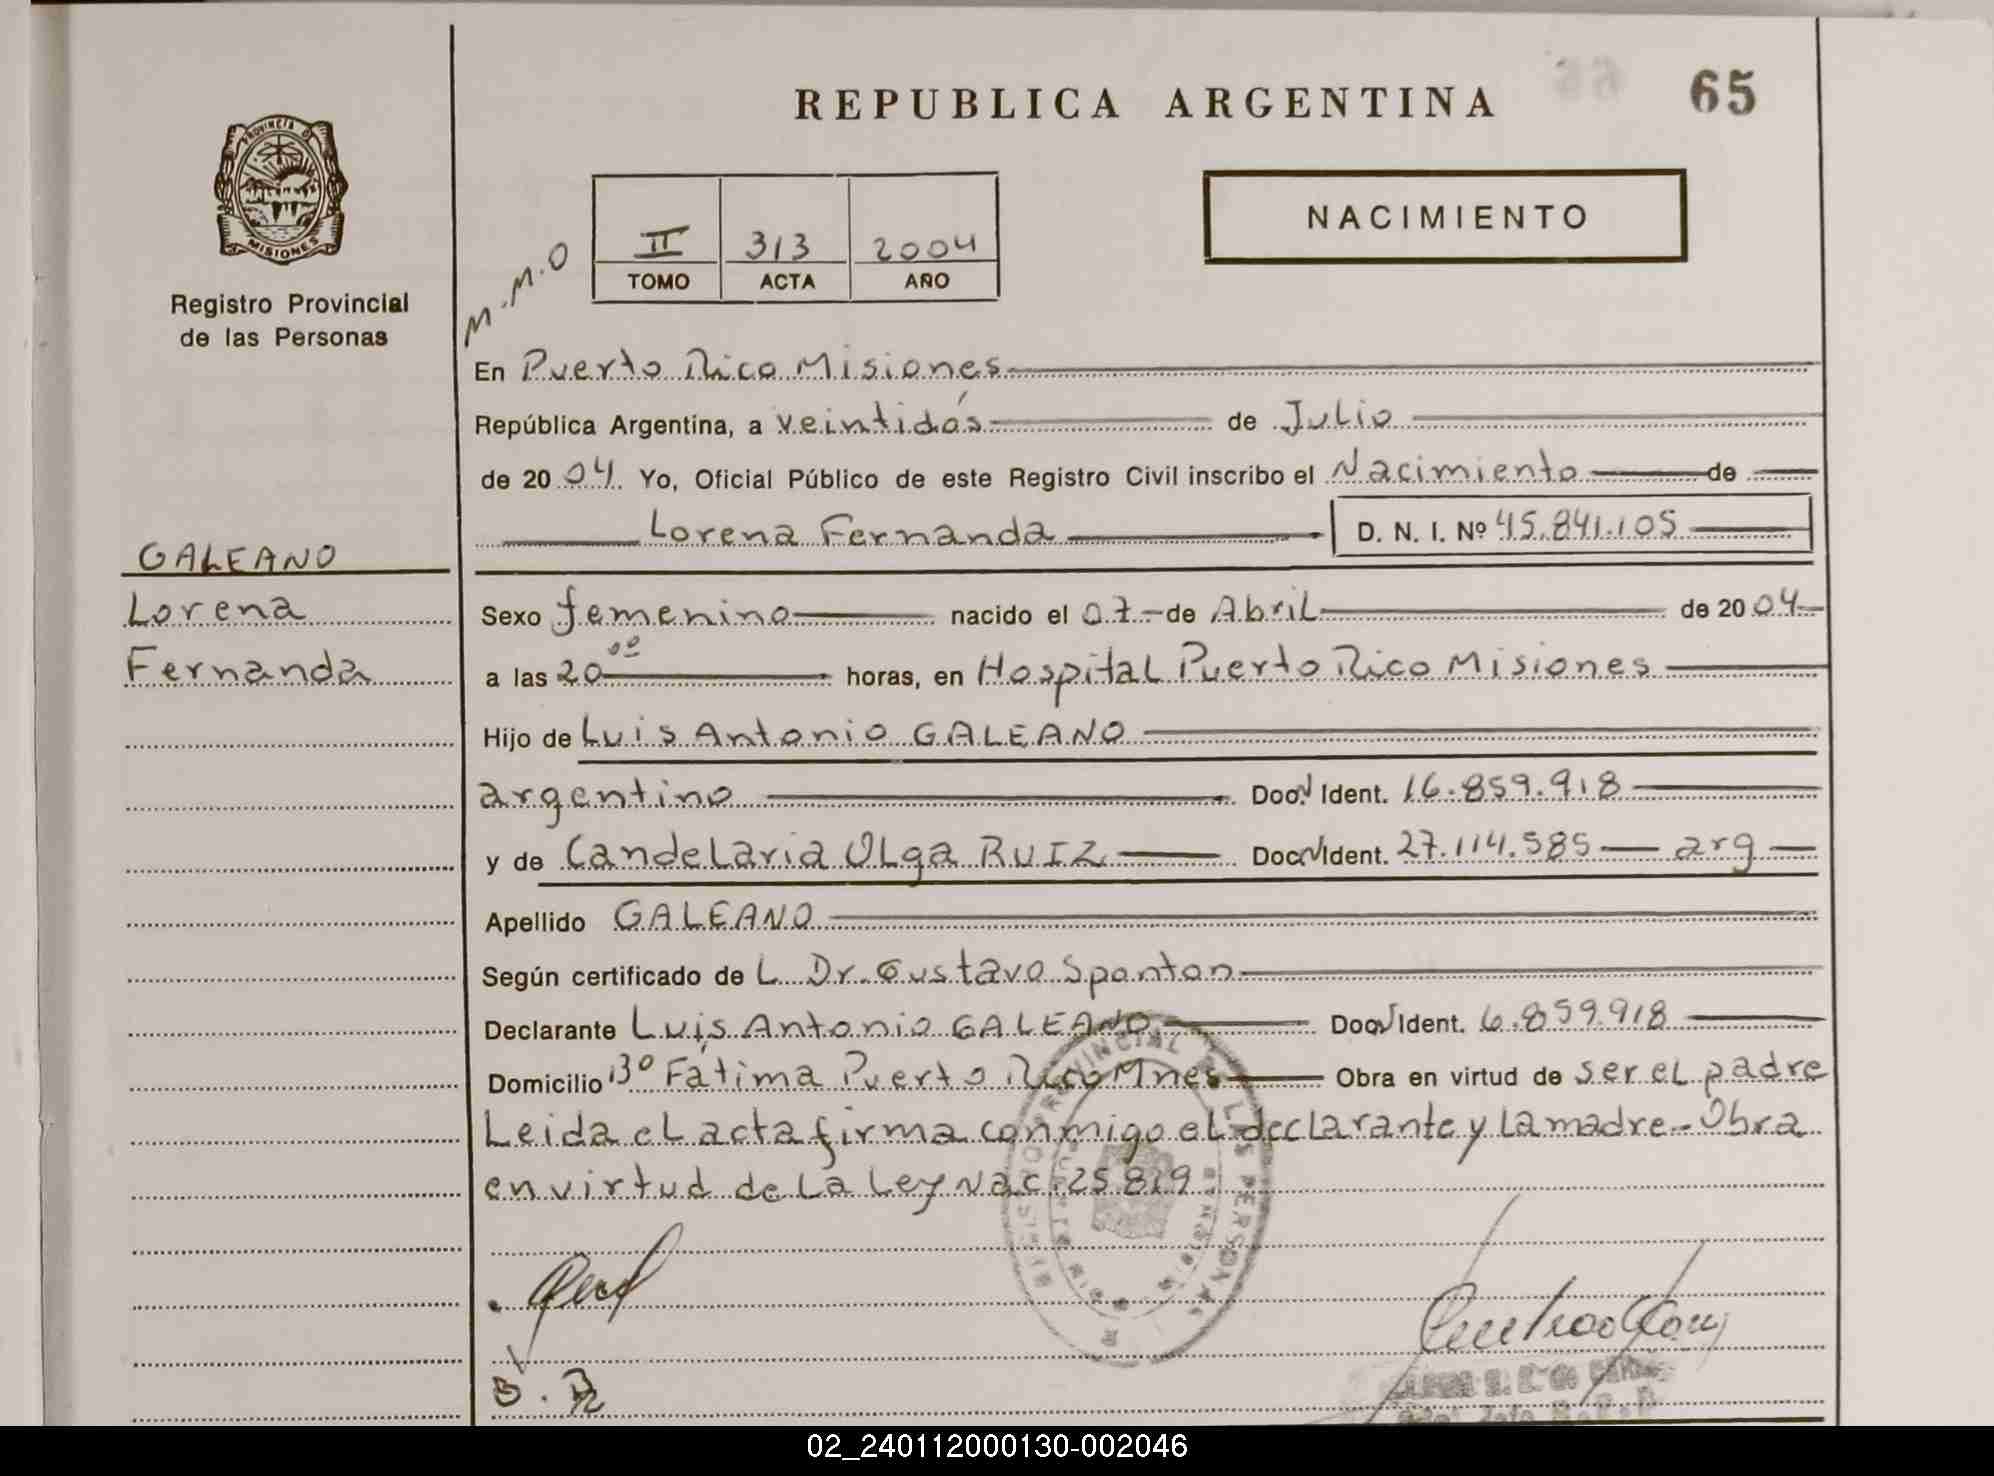 REPUBLICA ARGENTINA
65
PROVINCIA DE
MISIONES
Registro Provincial
de las Personas
NACIMIENTO
II 313 2004
TOMO ACTA AÑO
M.M.O
En Puerto Rico Misiones
República Argentina, a veintidós de Julio
de 2004. Yo, Oficial Público de este Registro Civil inscribo el Nacimiento de
Lorena Fernanda D. N. I. Nº 45.841.105
GALEANO
Lorena
Fernanda
Sexo femenino nacido el 07 de Abril de 2004
a las 20 00 horas, en Hospital Puerto Rico Misiones
Hijo de Luis Antonio GALEANO
argentino Doc. Ident. 16.859.918
y de Candelaria Olga RUIZ Doc. Ident. 27.114.585 arg
Apellido GALEANO
Según certificado de L Dr. Gustavo Sponton
Declarante Luis Antonio GALEANO Doc. Ident. 6.859.918
Domicilio Bº Fátima Puerto Rico Mnes Obra en virtud de ser el padre
Leida el acta firma conmigo el declarante y la madre - Obra
en virtud de la Ley Nac. 25.819
02_240112000130-002046